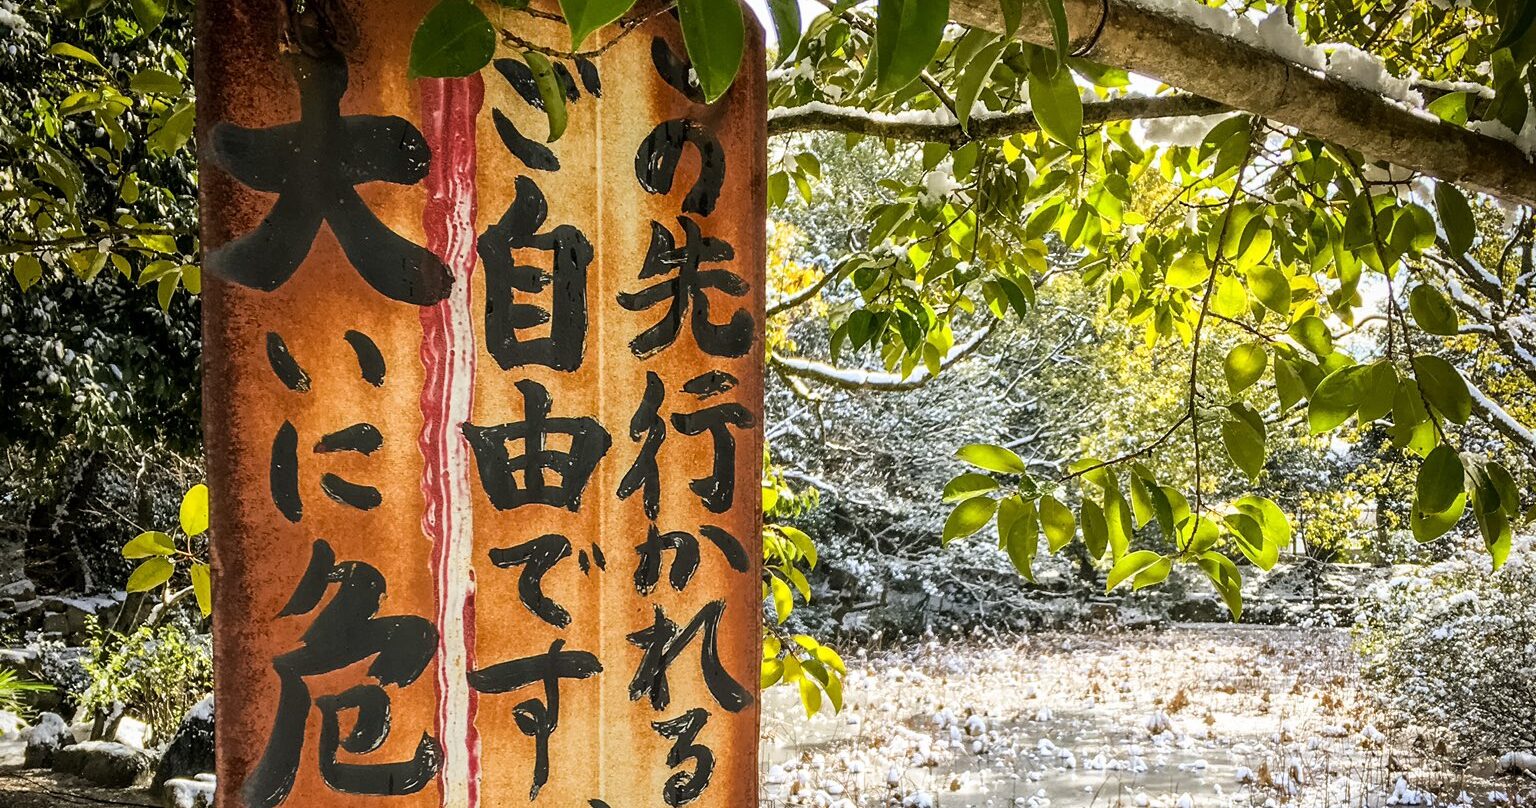 この先行かれる
ご自由です
大いに危